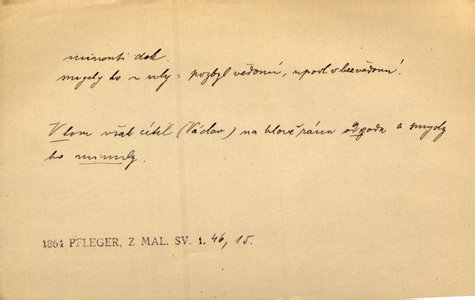 minouti dok.
smysly ho minuly = pozbyl vědomí, upadl v bezvědomí.
V tom však cítil (Václav) na hlavě ránu odzadu a smysly
ho minuly.
1864 PFLEGER, Z MAL. SV. 1. 46, 15.